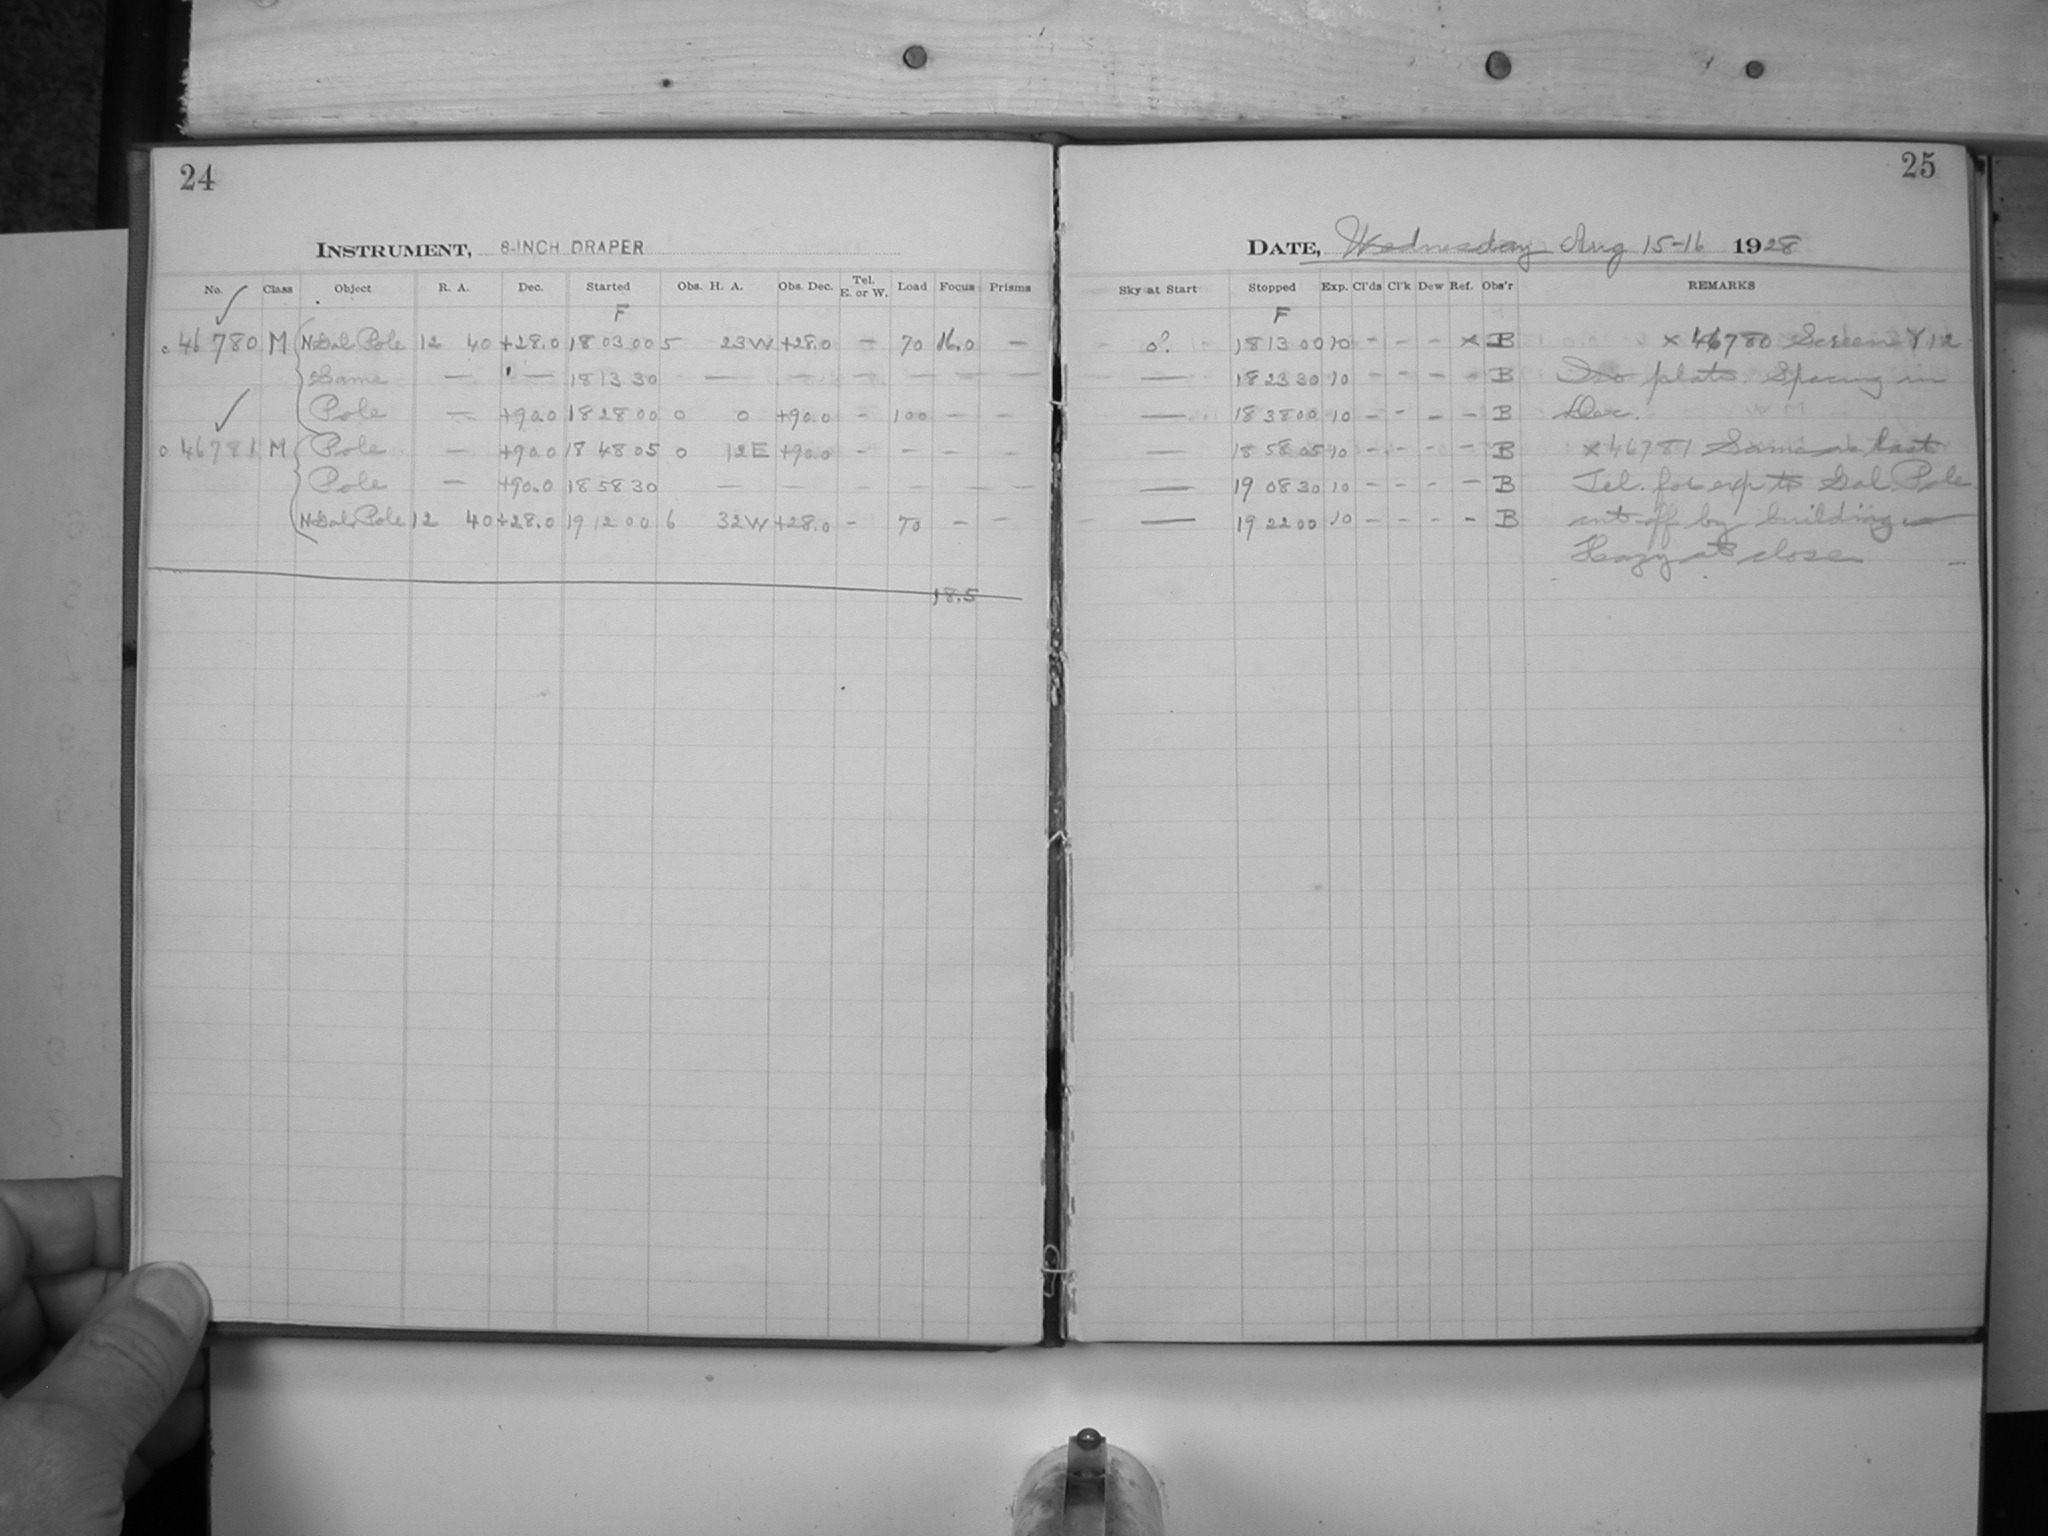 24
INSTRUMENT, 8-INCH DRAPER
No. Class Object R. A. Dec. Started Obs. H. A. Obs. Dec. Tel. E. or W. Load Focus Prisms
F
c 46780 M N.Gal. Pole 12 40 +28.0 18 03 00 5 23W +28.0 — 70 16.0 —
Same — — 18 13 30 — — — — — —
Pole — +90.0 18 28 00 0 0 +90.0 - 100 - -
46781 M Pole — +90.0 18 48 05 0 12E +90.0 - - - -
Pole — +90.0 18 58 30 — — — — — —
N.Gal. Pole 12 40 +28.0 19 12 00 6 32W +28.0 - 70 - -
18.5
25
DATE, Wednesday Aug 15-16 1928
Sky at Start Stopped Exp. Cl'ds Cl'k Dew Ref. Obs'r REMARKS
F
18 13 00 10 - - - x B x 46780 Screen Y12
— 18 23 30 10 - - - - B Iso plate. Spacing in
— 18 38 00 10 - - - - B Dec.
— 18 58 05 10 - - - - B x 46781 Same as last
— 19 08 30 10 - - - - B Tel. for exp to Gal. Pole
— 19 22 00 10 - - - - B cut off by building —
Hazy at close —